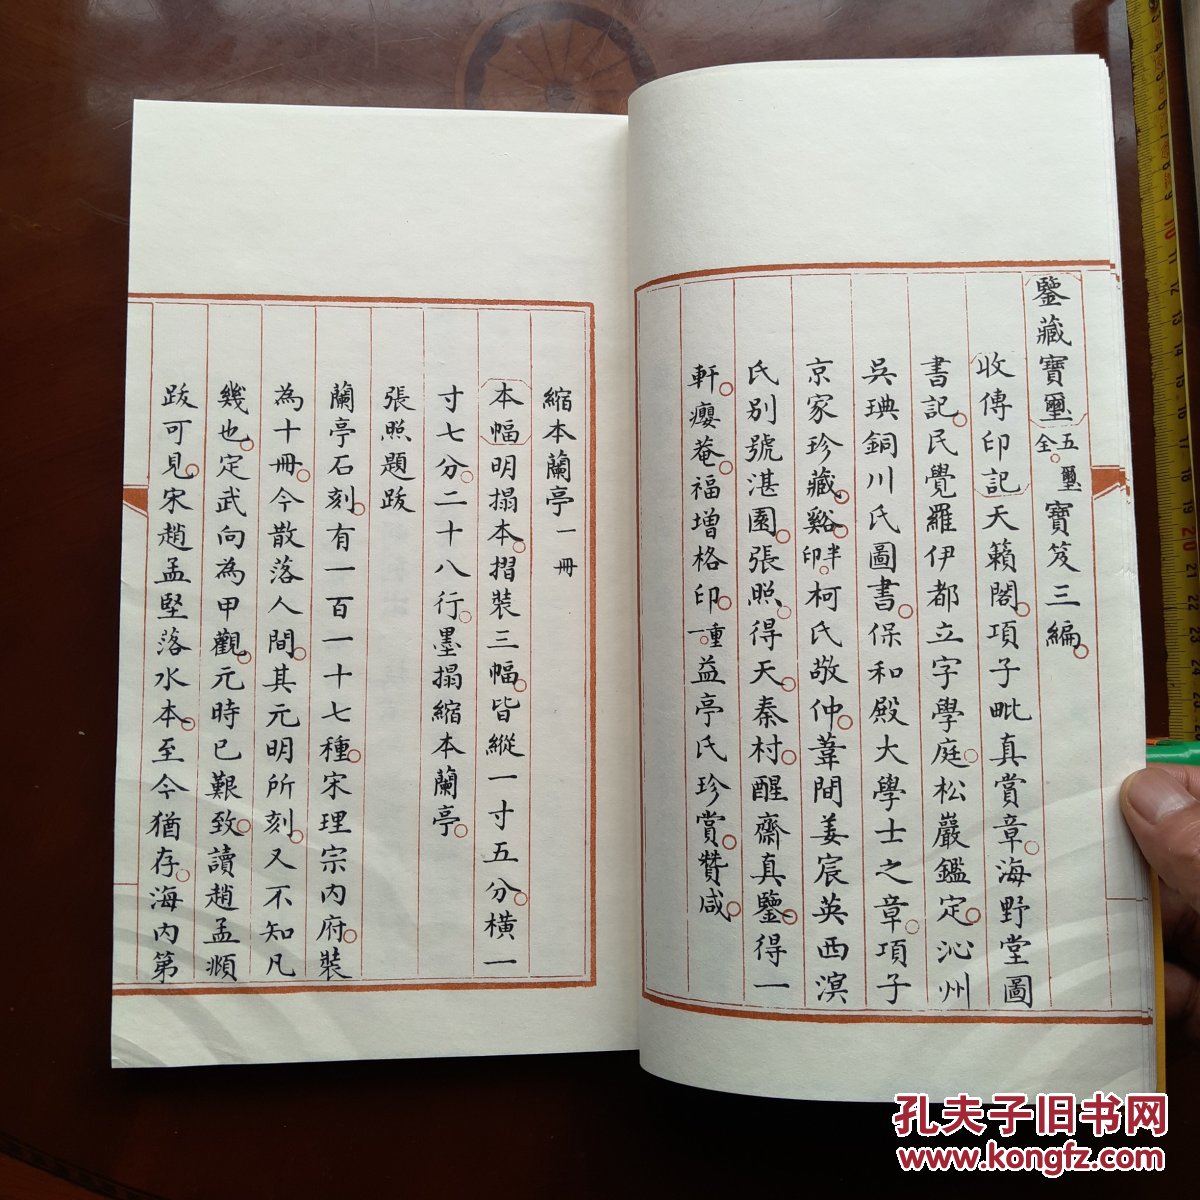 鑒藏寶璽五璽全寶笈三編
收傳印記天籟閣項子毗真賞章海野堂圖
書記民覺羅伊都立字學庭松巖鑑定沁州
吳琠銅川氏圖書保和殿大學士之章項子
京家珍藏谿半印柯氏敬仲葦間姜宸英西溟
氏別號湛園張照得天秦村醒齋真鑒得一
軒癭菴福增格印一重益亭氏珍賞贊咸
縮本蘭亭一冊
本幅明搨本摺裝三幅皆縱一寸五分橫一
寸七分二十八行墨搨縮本蘭亭
張照題跋
蘭亭石刻有一百一十七種宋理宗內府裝
為十冊今散落人間其元明所刻又不知凡
幾也定武向為甲觀元時已艱致讀趙孟頫
跋可見宋趙孟堅落水本至今猶存海內第
孔夫子旧书网
www.kongfz.com